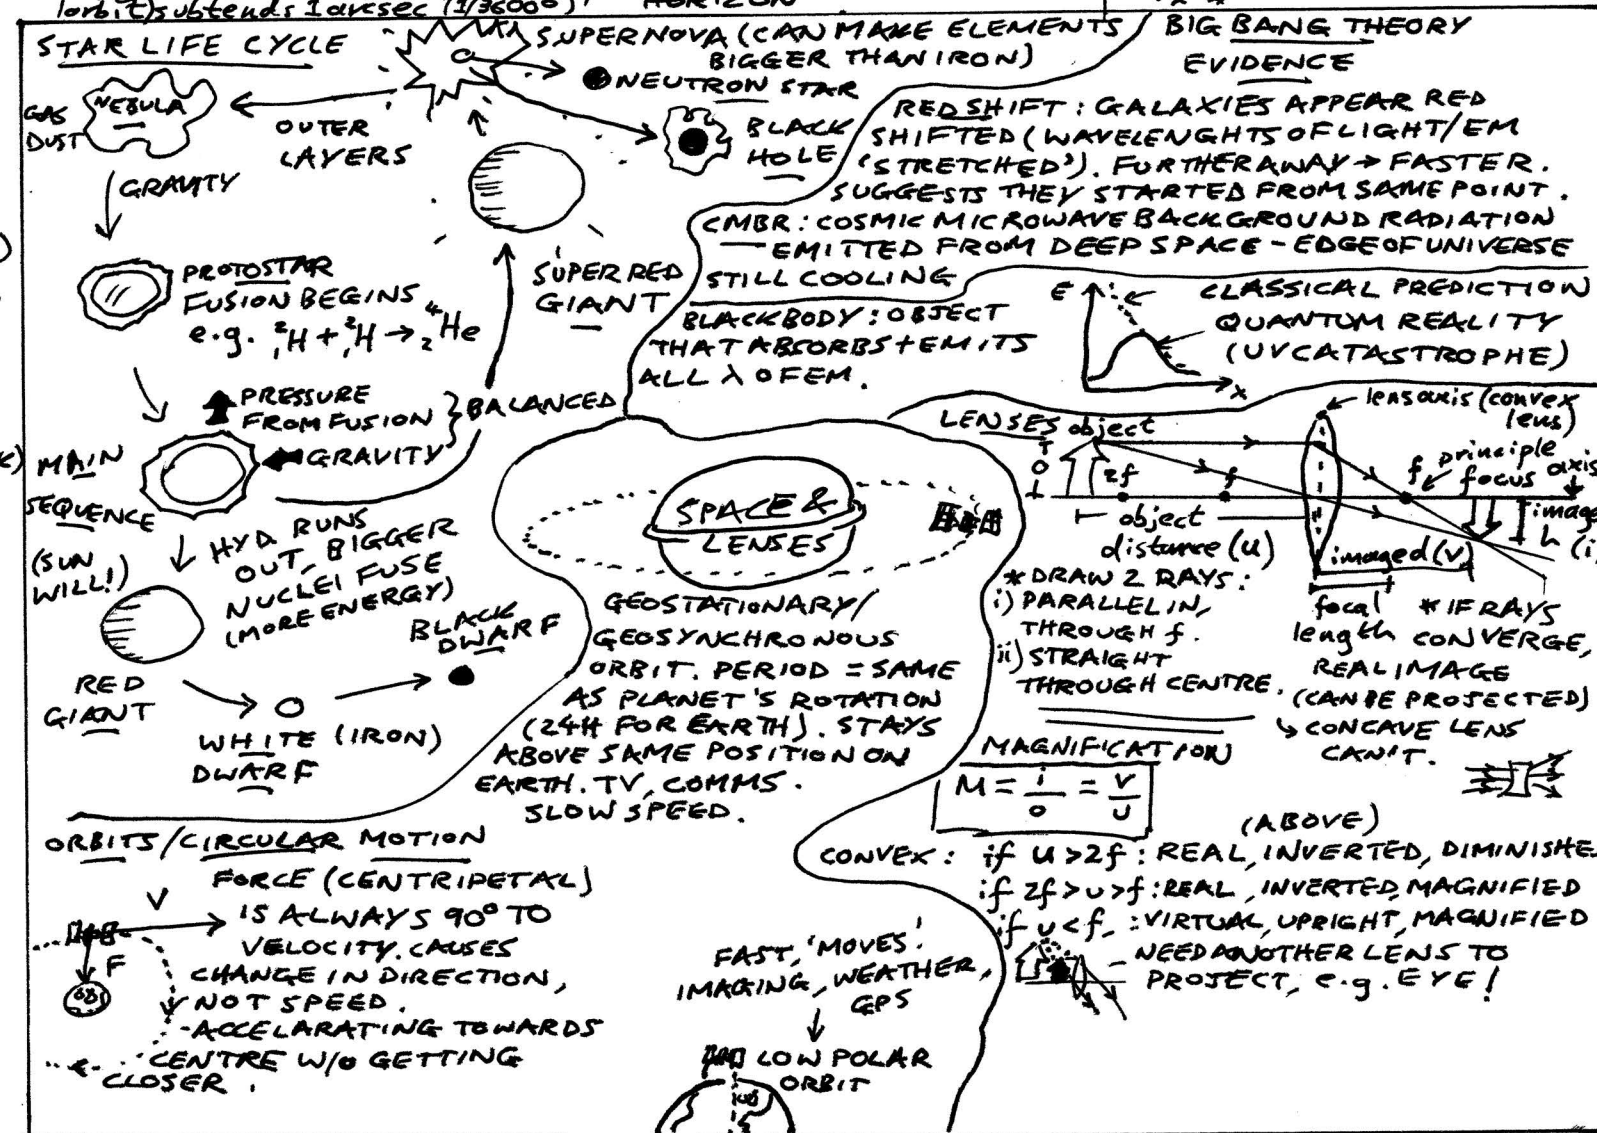 (orbit) subtends 1 arcsec (1/3600°)
HORIZON
STAR LIFE CYCLE
SUPERNOVA (CAN MAKE ELEMENTS
BIGGER THAN IRON)
NEUTRON STAR
BLACK
HOLE
NEBULA
GAS
DUST
OUTER
LAYERS
GRAVITY
PROTOSTAR
FUSION BEGINS
e.g. ²₁H + ²₁H → ⁴₂He
SUPER RED
GIANT
PRESSURE
FROM FUSION
GRAVITY
} BALANCED
MAIN
SEQUENCE
(SUN
WILL!)
HYD. RUNS
OUT, BIGGER
NUCLEI FUSE
(MORE ENERGY)
RED
GIANT
WHITE (IRON)
DWARF
BLACK
DWARF
BIG BANG THEORY
EVIDENCE
RED SHIFT : GALAXIES APPEAR RED
SHIFTED (WAVELENGHTS OF LIGHT/EM
'STRETCHED'). FURTHER AWAY → FASTER.
SUGGESTS THEY STARTED FROM SAME POINT.
CMBR : COSMIC MICROWAVE BACKGROUND RADIATION
— EMITTED FROM DEEP SPACE - EDGE OF UNIVERSE
STILL COOLING
BLACKBODY : OBJECT
THAT ABSORBS + EMITS
ALL λ OF EM.
E
CLASSICAL PREDICTION
QUANTUM REALITY
(UV CATASTROPHE)
λ
SPACE &
LENSES
GEOSTATIONARY/
GEOSYNCHRONOUS
ORBIT. PERIOD = SAME
AS PLANET'S ROTATION
(24H FOR EARTH). STAYS
ABOVE SAME POSITION ON
EARTH. TV, COMMS.
SLOW SPEED.
LENSES
object
lens axis (convex
lens)
o
2f
f
f
principle
focus
axis
object
distance (u)
image d (v)
image
h (i)
focal
length
* DRAW 2 RAYS :
i) PARALLEL IN,
THROUGH f.
ii) STRAIGHT
THROUGH CENTRE.
* IF RAYS
CONVERGE,
REAL IMAGE
(CAN BE PROJECTED)
↳ CONCAVE LENS
CAN'T.
MAGNIFICATION
M = i/o = v/u
(ABOVE)
CONVEX : if u > 2f : REAL, INVERTED, DIMINISHE
if 2f > u > f : REAL, INVERTED, MAGNIFIED
if u < f, : VIRTUAL, UPRIGHT, MAGNIFIED
- NEED ANOTHER LENS TO
PROJECT, e.g. EYE!
ORBITS/CIRCULAR MOTION
FORCE (CENTRIPETAL)
IS ALWAYS 90° TO
VELOCITY. CAUSES
CHANGE IN DIRECTION,
NOT SPEED.
- ACCELARATING TOWARDS
CENTRE W/O GETTING
CLOSER.
V
F
FAST, 'MOVES'.
IMAGING, WEATHER,
GPS
LOW POLAR
ORBIT